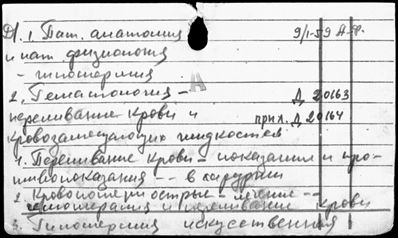 Д/. 1. Пат. анатомия 9/1-59 А-Ф.
и пат. физиология
- гипотермия
2. Гематология -
переливание крови и Д 20163
кровозамещающих жидкостей прил. Д 20164
1. Переливание крови - показания и про-
тивопоказания -- в хирургии
2. Кровопотери острые - лечение --
гипотермия и переливание крови
3. Гипотермия искусственная